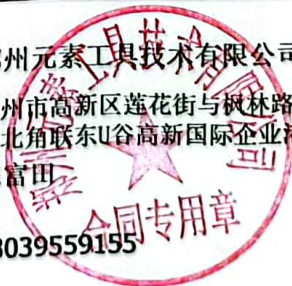 州元素工具技术有限公司
州市高新区莲花街与枫林路
北角联东U谷高新国际企业
富田
039559155
州元素工具技术有限公司
合同专用章